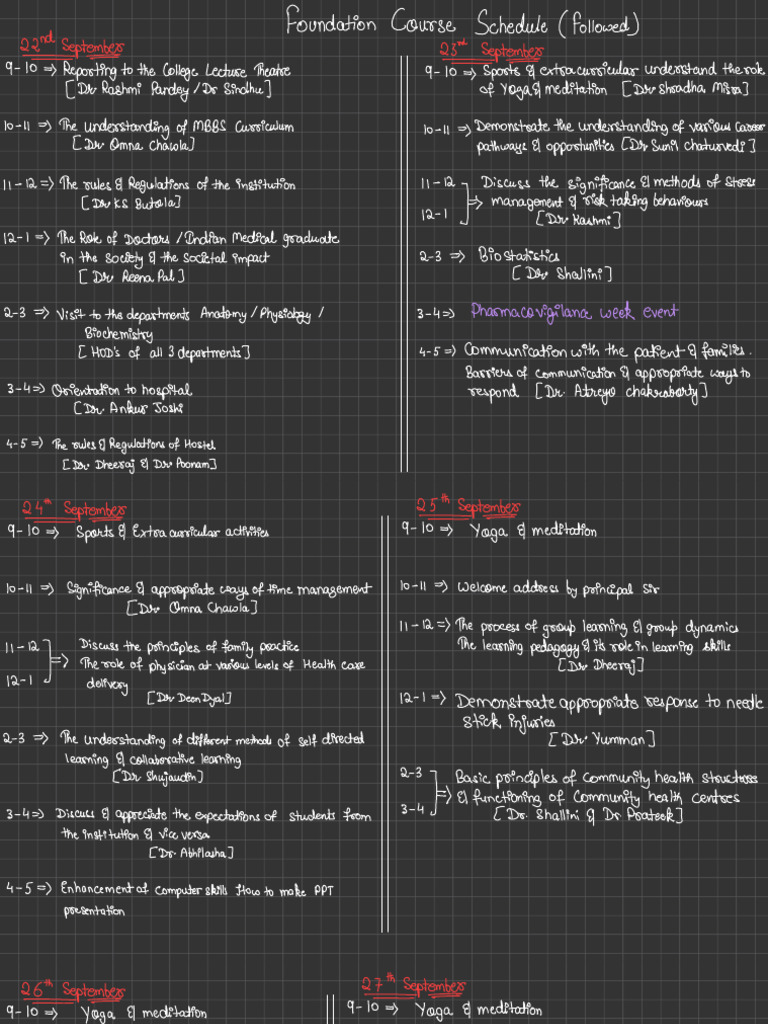 Foundation Course Schedule (Followed)
22nd September
9-10 => Reporting to the College Lecture Theatre
[Dr Rashmi Pandey / Dr Sindhu]
10-11 => The understanding of MBBS Curriculum
[Dr Omna Chawla]
11-12 => The rules & Regulations of the institution
[Dr KS Butola]
12-1 => The Role of Doctors / Indian Medical graduate
in the society & the societal impact
[Dr Reena Pal]
2-3 => Visit to the departments Anatomy / Physiology /
Biochemistry
[HOD's of all 3 departments]
3-4 => Orientation to hospital
[Dr Ankur Joshi
4-5 => The rules & Regulations of Hostel
[Dr Dheeraj & Dr Poonam]
23rd September
9-10 => Sports & extra curricular understand the role
of Yoga & meditation [Dr Shradha Misra]
10-11 => Demonstrate the understanding of various career
pathways & opportunities [Dr Sunil Chaturvedi]
11-12
12-1
=> Discuss the significance & methods of stress
management & risk taking behaviours
[Dr Rashmi]
2-3 => Biostatistics
[Dr Shallini]
3-4 => Pharmacovigilance week event
4-5 => Communication with the patient & families.
Barriers of communication & appropriate ways to
respond [Dr. Atreyo Chakraborty]
24th September
9-10 => Sports & Extra curricular activities
10-11 => Significance & appropriate ways of time management
[Dr Omna Chawla]
11-12
12-1
=> Discuss the principles of family practice
The role of physician at various levels of Health care
delivery
[Dr Deen Dyal]
2-3 => The understanding of different methods of self directed
learning & collaborative learning
[Dr Shujaudin]
3-4 => Discuss & appreciate the expectations of students from
the institution & vice versa
[Dr. Abhilasha]
4-5 => Enhancement of computer skills How to make PPT
presentation
25th September
9-10 => Yoga & meditation
10-11 => Welcome address by principal sir
11-12 => The process of group learning & group dynamics
The learning pedagogy & its role in learning skills
[Dr Dheeraj]
12-1 => Demonstrate appropriate response to needle
stick injuries
[Dr. Yumman]
2-3
3-4
=> Basic principles of Community health structures
& functioning of Community health centres
[Dr. Shallini & Dr Prateek]
26th September
9-10 => Yoga & meditation
27th September
9-10 => Yoga & meditation